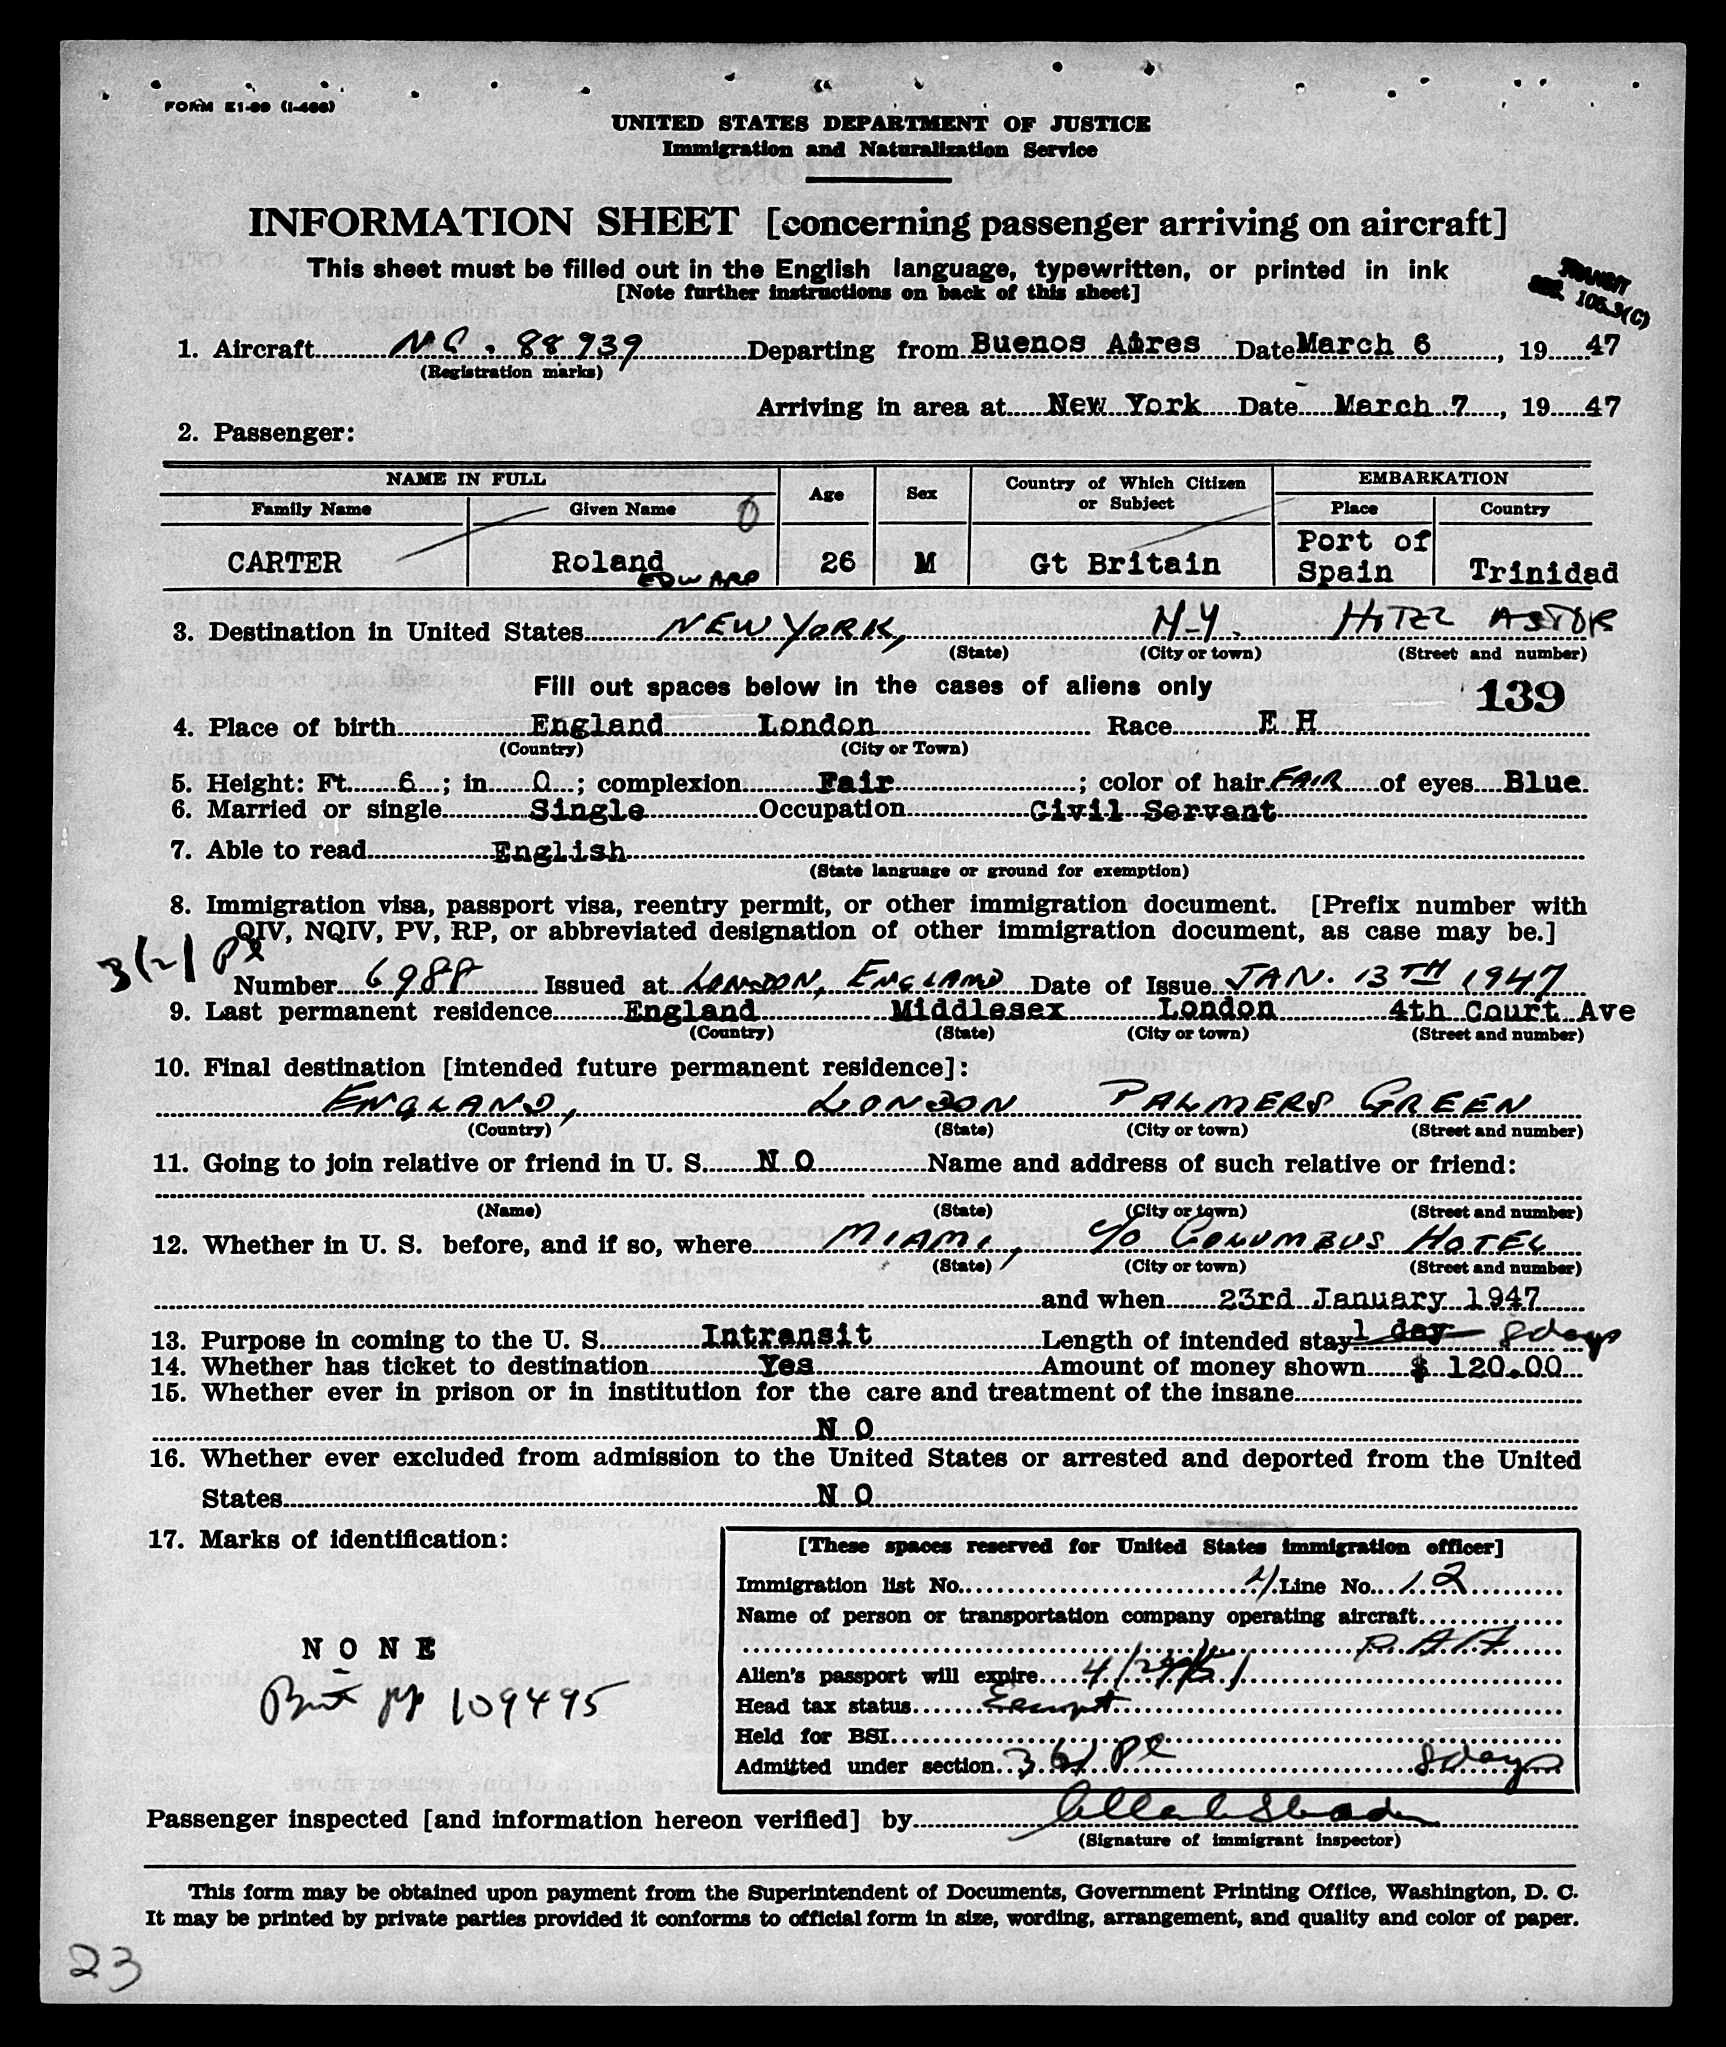 FORM I-466
UNITED STATES DEPARTMENT OF JUSTICE
Immigration and Naturalization Service
INFORMATION SHEET [concerning passenger arriving on aircraft]
This sheet must be filled out in the English language, typewritten, or printed in ink
[Note further instructions on back of this sheet]
TRANSIT
SEC. 105.3(C)
1. Aircraft NC. 88939 Departing from Buenos Aires Date March 6, 19 47
(Registration marks)
Arriving in area at New York Date March 7, 19 47
2. Passenger:
NAME IN FULL Age Sex Country of Which Citizen or Subject EMBARKATION
Family Name Given Name Place Country
CARTER Roland EDWARD 26 M Gt Britain Port of Spain Trinidad
3. Destination in United States NEW YORK, N.Y. HOTEL ASTOR
(State) (City or town) (Street and number)
Fill out spaces below in the cases of aliens only 139
4. Place of birth England London Race E H
(Country) (City or Town)
5. Height: Ft. 6; in 0; complexion Fair; color of hair FAIR of eyes Blue
6. Married or single Single Occupation Civil Servant
7. Able to read English
(State language or ground for exemption)
8. Immigration visa, passport visa, reentry permit, or other immigration document. [Prefix number with
QIV, NQIV, PV, RP, or abbreviated designation of other immigration document, as case may be.]
3(2) Pl
Number 6988 Issued at LONDON, ENGLAND Date of Issue JAN. 13TH 1947
9. Last permanent residence England Middlesex London 4th Court Ave
(Country) (State) (City or town) (Street and number)
10. Final destination [intended future permanent residence]:
ENGLAND, LONDON PALMERS GREEN
(Country) (State) (City or town) (Street and number)
11. Going to join relative or friend in U. S. N O Name and address of such relative or friend:
(Name) (State) (City or town) (Street and number)
12. Whether in U. S. before, and if so, where MIAMI, c/o COLUMBUS HOTEL
(State) (City or town) (Street and number)
and when 23rd January 1947
13. Purpose in coming to the U. S. Intransit Length of intended stay 1 day 8 days
14. Whether has ticket to destination Yes Amount of money shown $ 120.00
15. Whether ever in prison or in institution for the care and treatment of the insane
N O
16. Whether ever excluded from admission to the United States or arrested and deported from the United
States N O
17. Marks of identification:
N O N E
Brit pp 109495
[These spaces reserved for United States immigration officer]
Immigration list No. 4 Line No. 12
Name of person or transportation company operating aircraft
P. A. A
Alien's passport will expire
Head tax status Exempt
Held for BSI
Admitted under section 3(2) Pl 8 days
Passenger inspected [and information hereon verified] by
(Signature of immigrant inspector)
This form may be obtained upon payment from the Superintendent of Documents, Government Printing Office, Washington, D. C.
It may be printed by private parties provided it conforms to official form in size, wording, arrangement, and quality and color of paper.
23